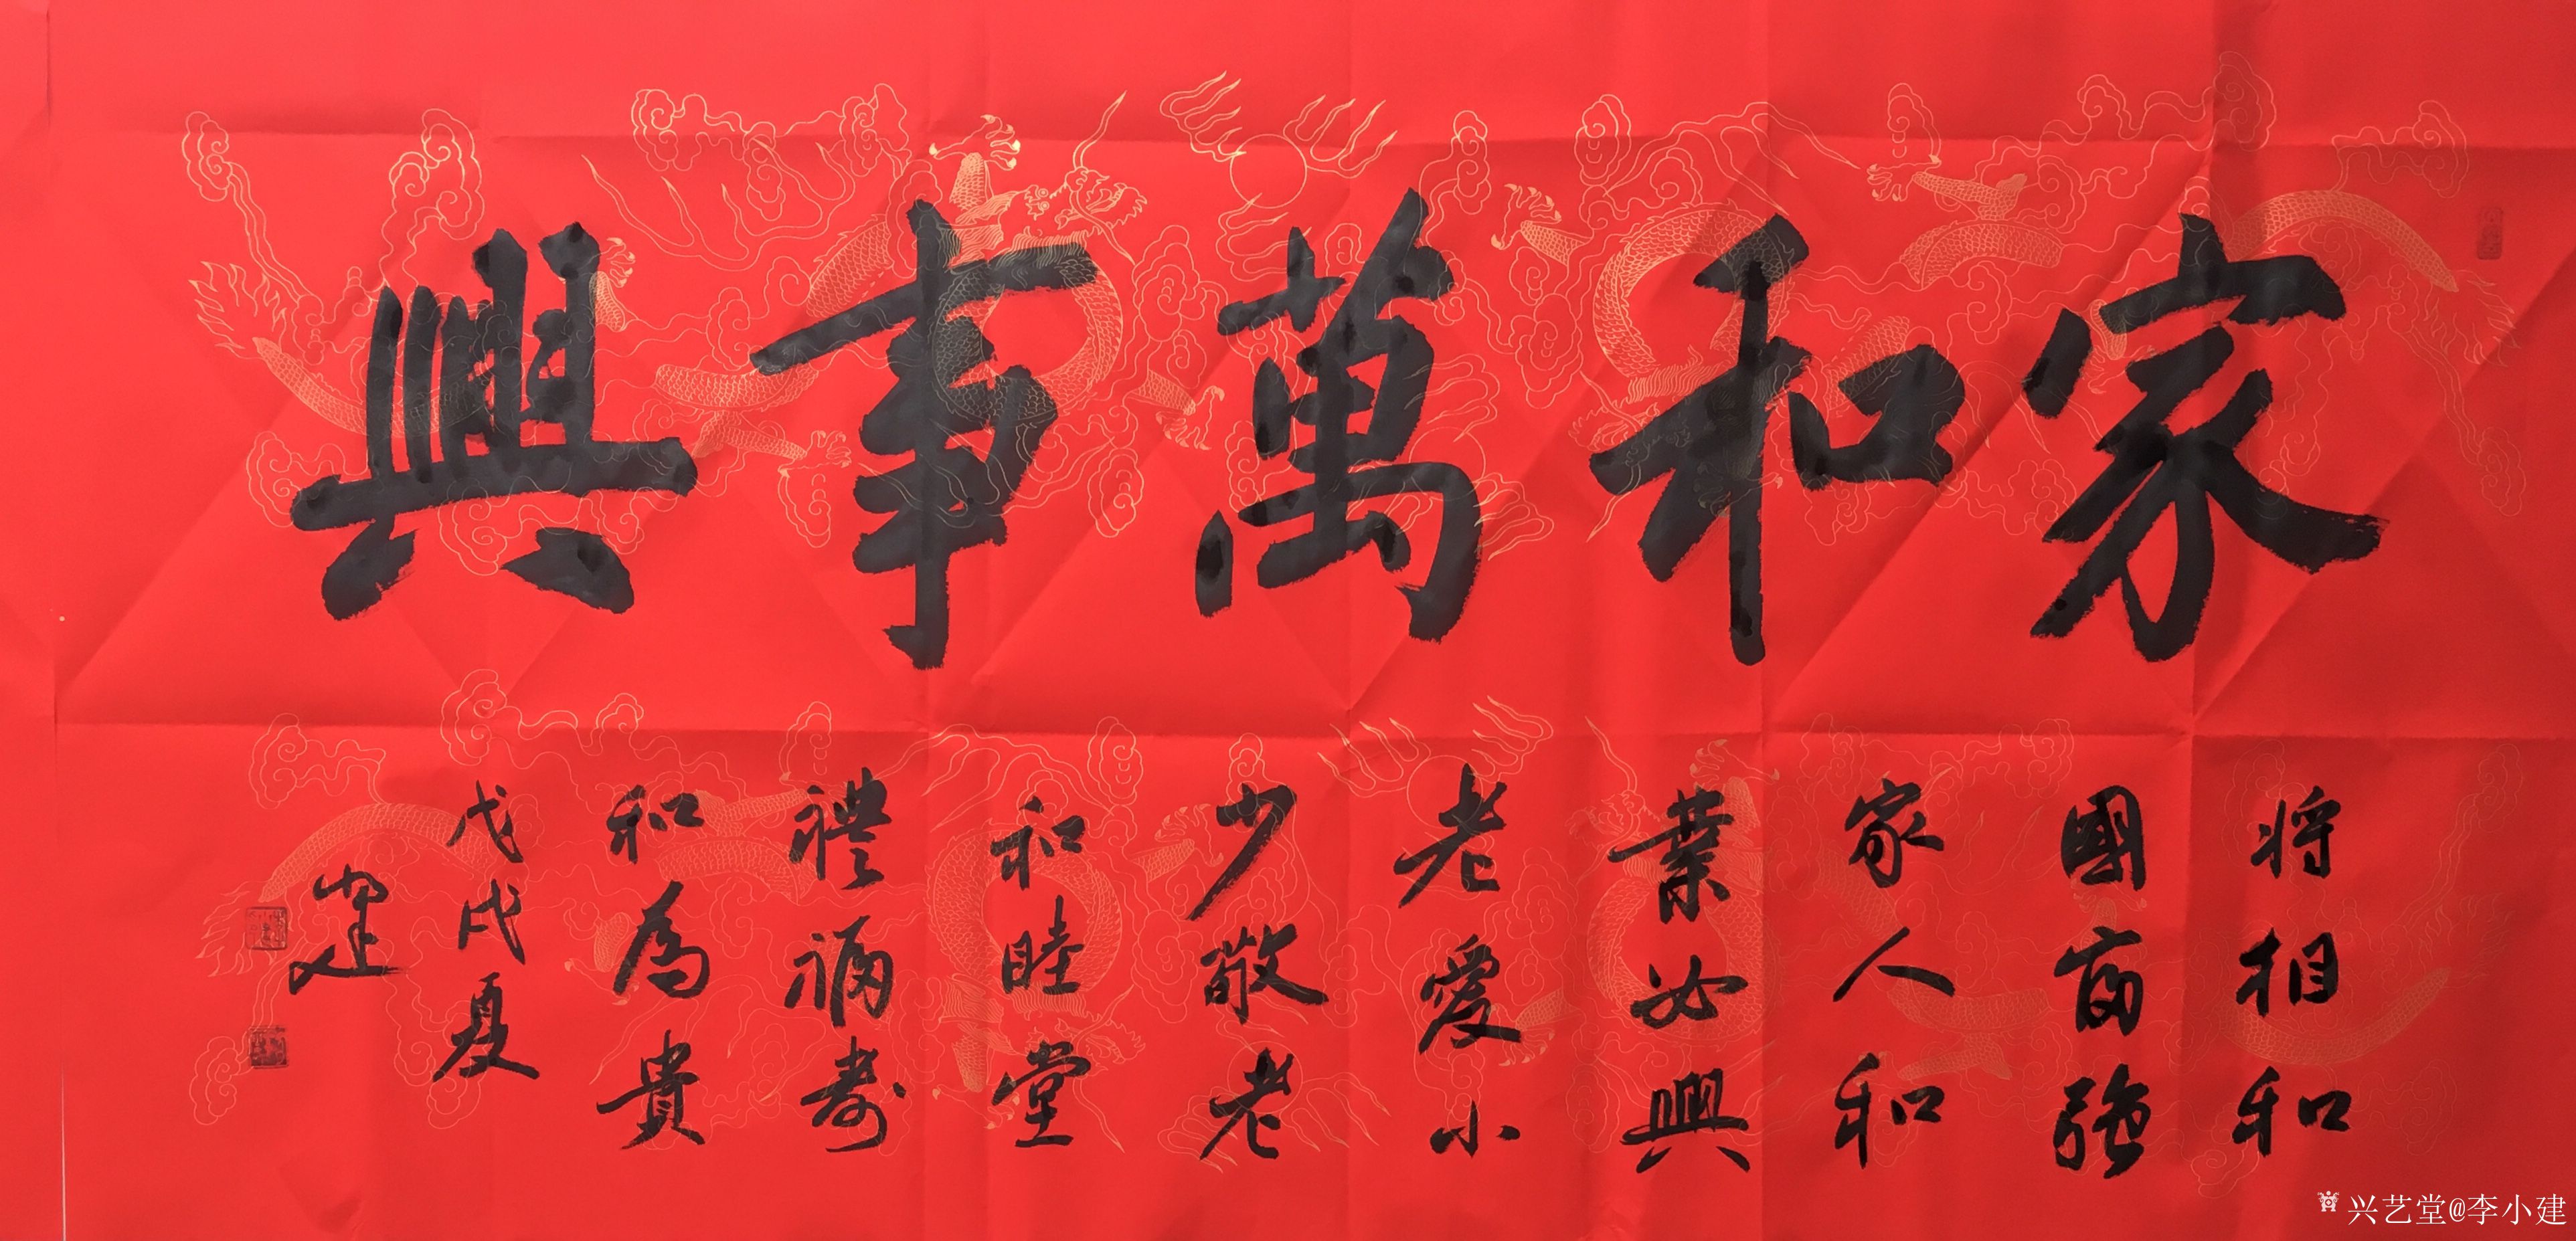 家和萬事興
將相和
國富強
家人和
業必興
老愛小
少敬老
和睦堂
禮福壽
和為貴
戊戌夏
小建
兴艺堂@李小建